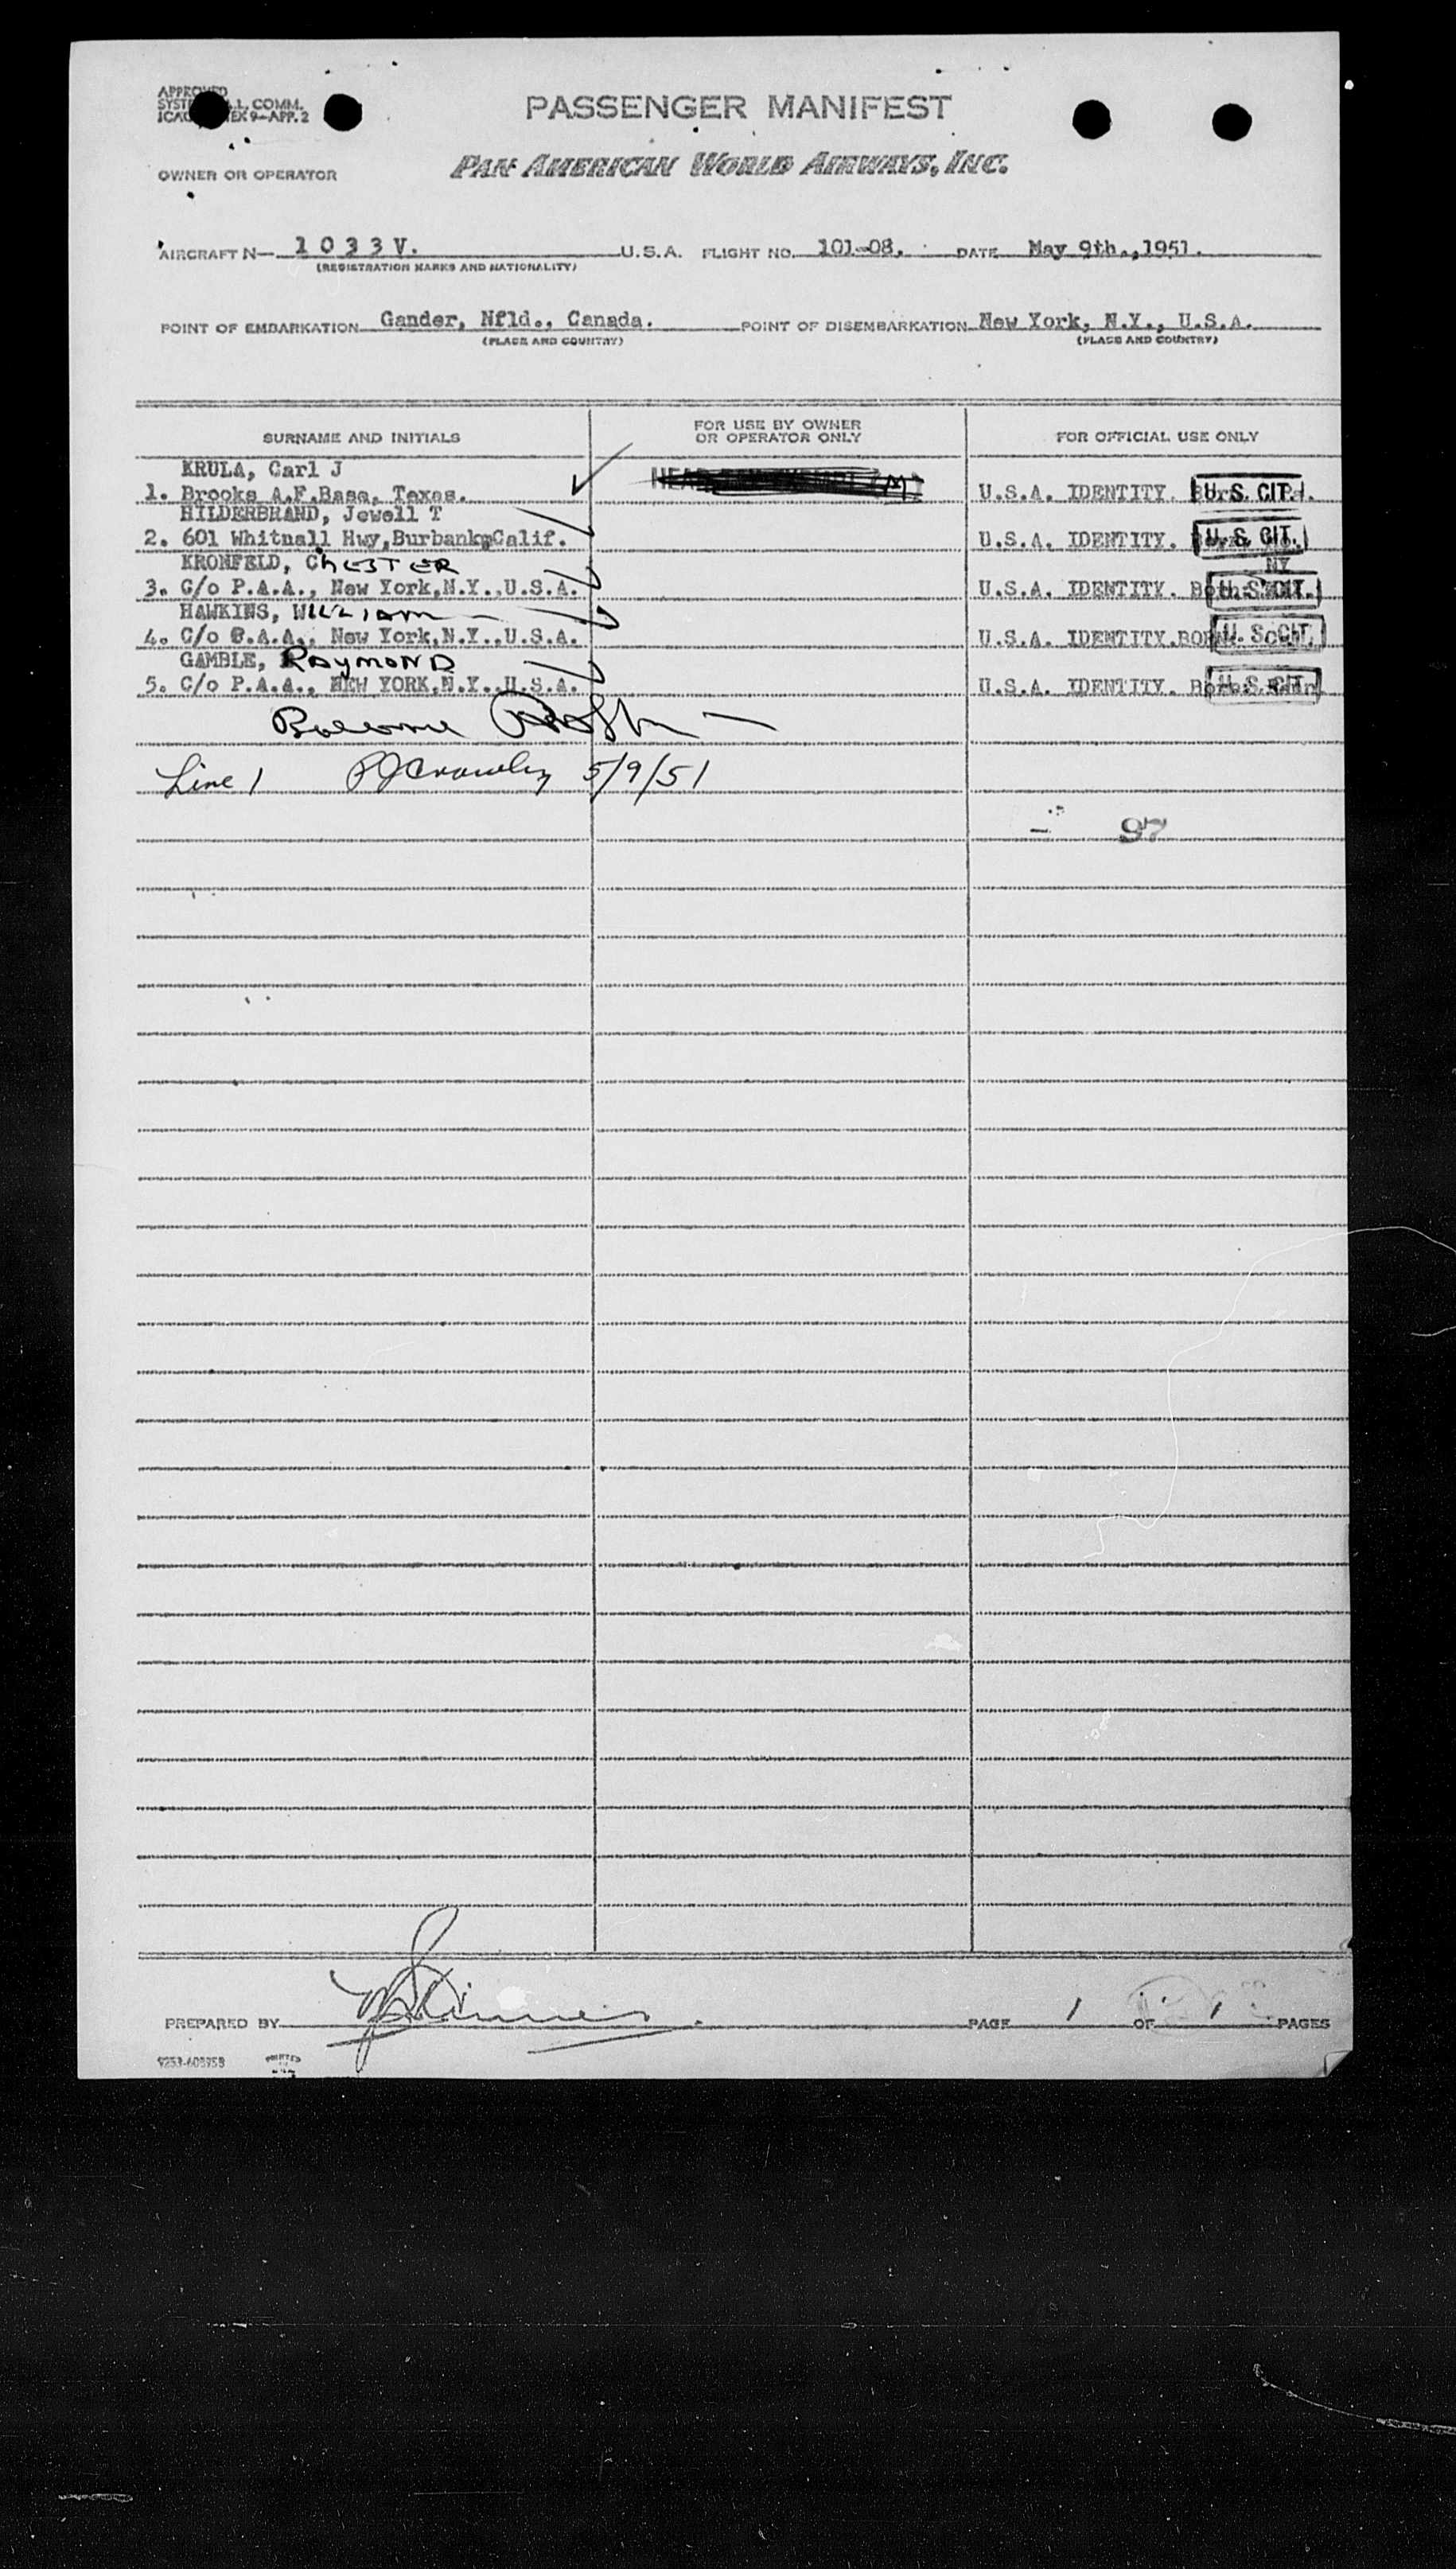 PASSENGER MANIFEST
PAN AMERICAN WORLD AIRWAYS, INC.
APPROVED
COMM.
9-APP. 2
OWNER OR OPERATOR
AIRCRAFT N- 1 0 3 3 V. U.S.A. FLIGHT NO. 101-08. DATE May 9th.,1951.
(REGISTRATION MARKS AND NATIONALITY)
POINT OF EMBARKATION Gander, Nfld., Canada. POINT OF DISEMBARKATION New York, N.Y., U.S.A.
(PLACE AND COUNTRY) (PLACE AND COUNTRY)
SURNAME AND INITIALS FOR USE BY OWNER OR OPERATOR ONLY FOR OFFICIAL USE ONLY
KRULA, Carl J
1. Brooks A.F.Base, Texas. U.S.A. IDENTITY. U.S. CIT.
HILDERBRAND, Jewell T
2. 601 Whitnall Hwy,Burbank,Calif. U.S.A. IDENTITY. U.S. CIT.
KRONFELD, CHESTER NY
3. C/o P.A.A., New York,N.Y.,U.S.A. U.S.A. IDENTITY.
HAWKINS, WILLIAM
4. C/o P.A.A., New York,N.Y.,U.S.A. U.S.A. IDENTITY.BORN U.S. CIT.
GAMBLE, RAYMOND
5. C/o P.A.A., NEW YORK,N.Y.,U.S.A. U.S.A. IDENTITY. Born U.S. CIT.
Line 1 PJ Crowley 5/9/51
97
PREPARED BY PAGE 1 OF 1 PAGES
9253-605958 PRINTED